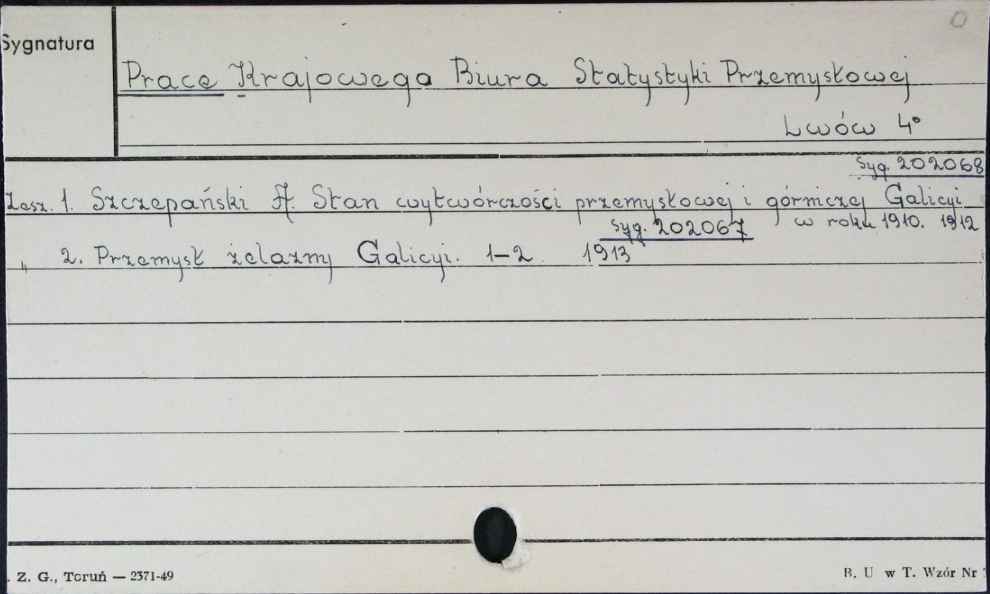 O
Sygnatura
Prace Krajowego Biura Statystyki Przemysłowej
Lwów 4°
Syg. 202068
Zesz. 1. Szczepański A. Stan wytwórczości przemysłowej i górniczej Galicyi
w roku 1910. 1912
Syg. 202067
„ 2. Przemysł żelazny Galicyi. 1-2 1913
. Z. G., Toruń — 2371-49
B. U w T. Wzór Nr